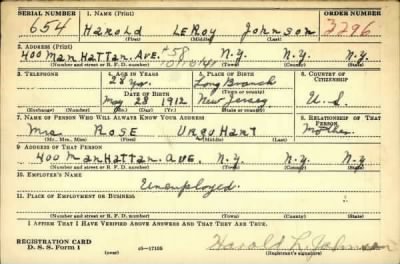 SERIAL NUMBER 1. NAME (Print) ORDER NUMBER
654 Harold LeRoy Johnson 3296
(First) (Middle) (Last)
2. ADDRESS (Print)
400 Manhattan Ave. N.Y. N.Y. N.Y.
(Number and street or R. F. D. number) (Town) (County) (State)
3. TELEPHONE 4. AGE IN YEARS 5. PLACE OF BIRTH 6. COUNTRY OF CITIZENSHIP
28 yr. Long Branch
DATE OF BIRTH (Town or county)
May 28 1912 New Jersey U.S.
(Exchange) (Number) (Mo.) (Day) (Yr.) (State or country)
7. NAME OF PERSON WHO WILL ALWAYS KNOW YOUR ADDRESS 8. RELATIONSHIP OF THAT PERSON
Mrs Rose Urquhart Mother
(Mr., Mrs., Miss) (First) (Middle) (Last)
9. ADDRESS OF THAT PERSON
400 Manhattan Ave. N.Y. N.Y. N.Y.
(Number and street or R. F. D. number) (Town) (County) (State)
10. EMPLOYER'S NAME
Unemployed.
11. PLACE OF EMPLOYMENT OR BUSINESS
(Number and street or R. F. D. number) (Town) (County) (State)
I AFFIRM THAT I HAVE VERIFIED ABOVE ANSWERS AND THAT THEY ARE TRUE.
REGISTRATION CARD
D. S. S. Form 1 (over) 16—17105 Harold L. Johnson
(Registrant's signature)